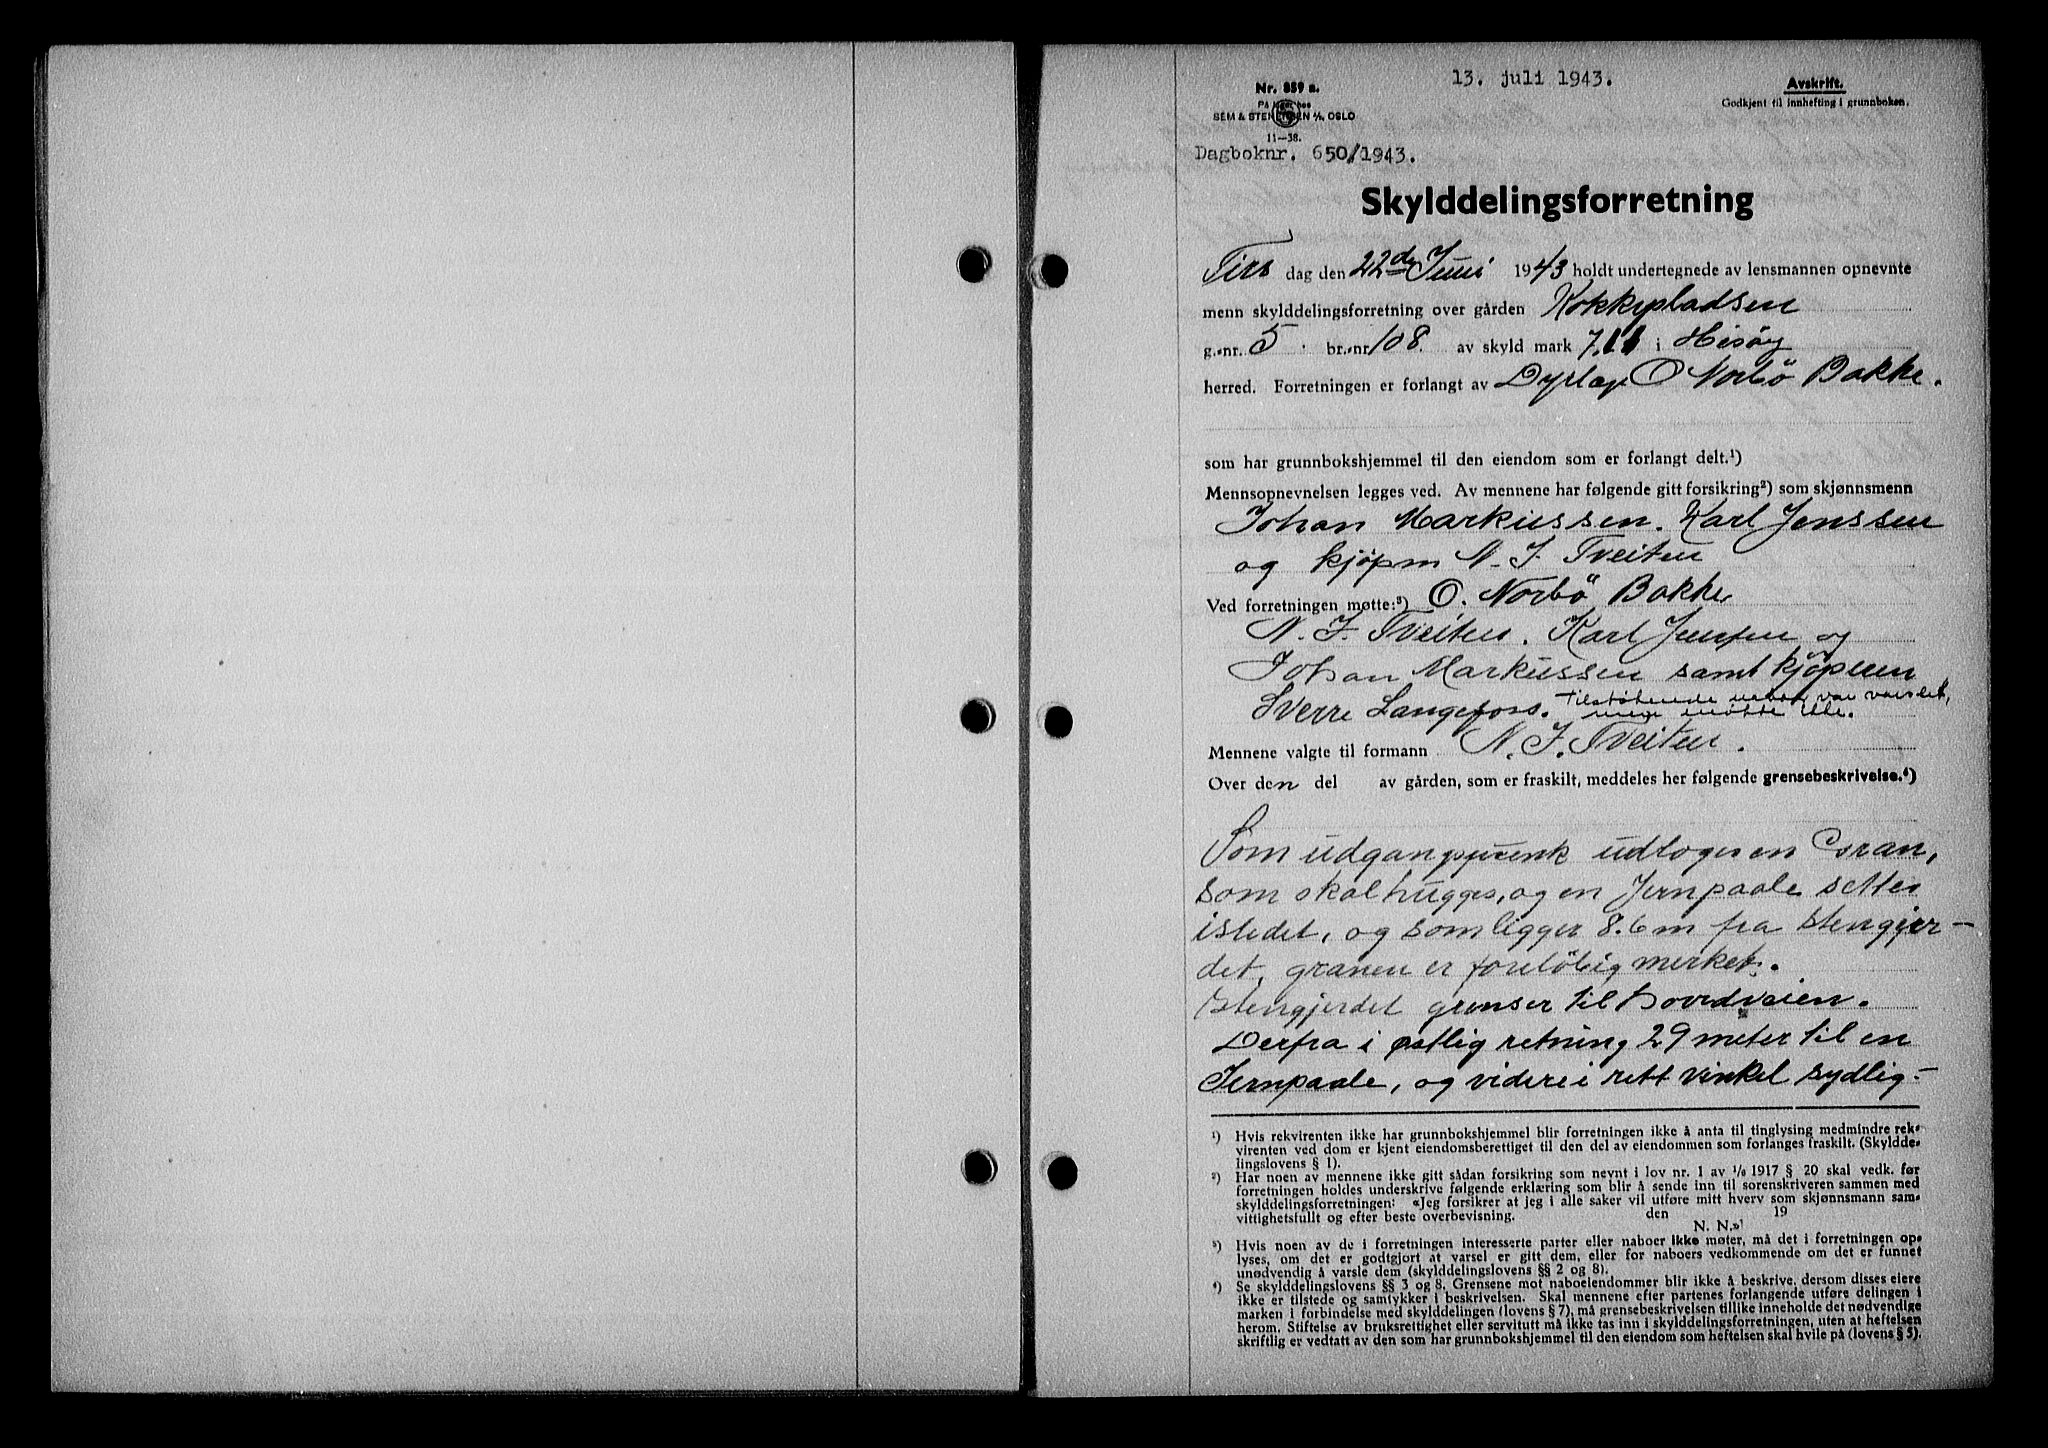 13. juli 1943.
Avskrift.
Nr. 859 a.
Godkjent til innhefting i grunnboken.
På lager hos
SEM & STENERSEN A/S, OSLO
11-38.
Dagboknr. 650/1943.
Skylddelingsforretning
Tirs dag den 22de Juni 1943 holdt undertegnede av lensmannen opnevnte
menn skylddelingsforretning over gården Kokkepladsen
g.-nr. 5 br.-nr. 108. av skyld mark i Hisöy
herred. Forretningen er forlangt av O Norbö Bakke.
som har grunnbokshjemmel til den eiendom som er forlangt delt.¹)
Mennsopnevnelsen legges ved. Av mennene har følgende gitt forsikring²) som skjønnsmenn
Johan Markussen. Karl Jenssen
og kjöpm N. J. Tveiten
Ved forretningen møtte:³) O. Norbö Bakke
N. J. Tveiten. Karl Jenssen og
Johan Markussen samt kjöperen
Sverre Langefoss. Tilstøtende naboer var varslet,
men møtte ikke.
Mennene valgte til formann N. J. Tveiten.
Over den del av gården, som er fraskilt, meddeles her følgende grensebeskrivelse.⁴)
Som udgangspunk udtoges en Gran,
som skal hugges, og en Jernpaale settes
istedet, og som ligger 8.6 m fra stengjer-
det, granen er foreløbig merket.
Stengjerdet grenser til hovedveien.
Derfra i østlig retning 29 meter til en
Jernpaale, og videre i rett vinkel sydlig-
¹) Hvis rekvirenten ikke har grunnbokshjemmel blir forretningen ikke å anta til tinglysing medmindre rek-
virenten ved dom er kjent eiendomsberettiget til den del av eiendommen som forlanges fraskilt. (Skyldde-
lingslovens § 1).
²) Har noen av mennene ikke gitt sådan forsikring som nevnt i lov nr. 1 av 1/6 1917 § 20 skal vedk. før
forretningen holdes underskrive følgende erklæring som blir å sende inn til sorenskriveren sammen med
skylddelingsforretningen: «Jeg forsikrer at jeg i alle saker vil utføre mitt hverv som skjønnsmann sam-
vittighetsfullt og efter beste overbevisning. den 19
N. N.»
³) Hvis noen av de i forretningen interesserte parter eller naboer ikke møter, må det i forretningen op-
lyses, om det er godtgjort at varsel er gitt dem, eller for naboers vedkommende om det er funnet
unødvendig å varsle dem (skylddelingslovens §§ 2 og 8).
⁴) Se skylddelingslovens §§ 3 og 8. Grensene mot naboeiendommer blir ikke å beskrive, dersom disses eiere
ikke er tilstede og samtykker i beskrivelsen. Skal mennene efter partenes forlangende utføre delingen i
marken i forbindelse med skylddelingen (lovens § 7), må grensebeskrivelsen tillike inneholde det nødvendige
herom. Stiftelse av bruksrettighet eller servitutt må ikke tas inn i skylddelingsforretningen, uten at heftelsen
skriftlig er vedtatt av den som har grunnbokshjemmel til den eiendom som heftelsen skal hvile på (lovens § 5).